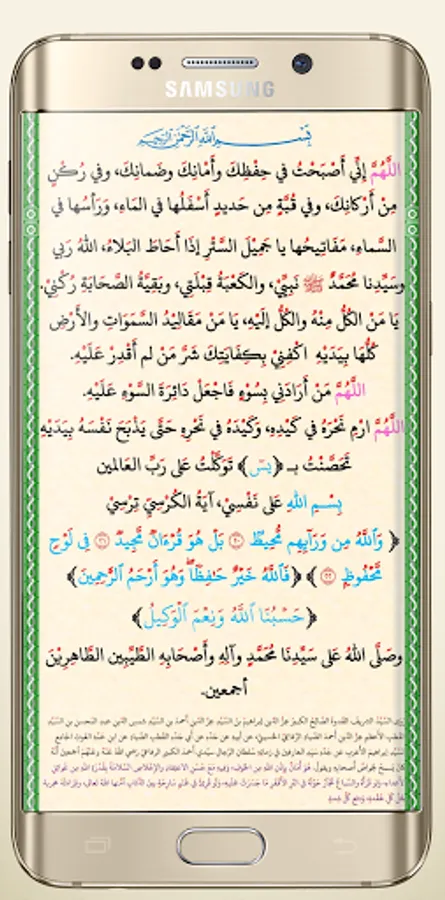 SAMSUNG
بِسْمِ اللَّهِ الرَّحْمَنِ الرَّحِيمِ
اللَّهُمَّ إِنِّي أَصْبَحْتُ فِي حِفْظِكَ وَأَمَانِكَ وَضَمَانِكَ، وَفِي رُكْنٍ
مِنْ أَرْكَانِكَ، وَفِي قُبَّةٍ مِن حَدِيدٍ أَسْفَلُهَا فِي المَاءِ، وَرَأْسُهَا فِي
السَّماءِ، مَفَاتِيحُها يا جَمِيلَ السَّتْرِ إِذَا أَحَاطَ البَلَاءُ، اللهُ رَبِي
وسَيِّدِنا مُحَمَّدٌ ﷺ نَبِيِّي، والكَعْبَةُ قِبْلَتِي، وبَقِيَّةُ الصَّحَابَةِ رُكْنِيْ.
يَا مَنْ الكُلُّ مِنْهُ وَالكُلُّ إِلَيْهِ، يَا مَنْ مَقَالِيْدُ السَّمَوَاتِ والأَرْضِ
كُلُّها بِيَدَيْهِ اكْفِنِيْ بِكِفَايَتِكَ شَرَّ مَنْ لم أَقْدِرْ عَلَيْهِ.
اللَّهُمَّ مَنْ أَرَادَنِي بِسُوْءٍ فَاجْعَلْ دَائِرَةَ السَّوْءِ عَلَيْهِ.
اللَّهُمَّ ارْمِ نَحْرَهُ فِي كَيْدِهِ، وَكَيْدَهُ فِي نَحْرِهِ حَتَّى يَذْبَحَ نَفْسَهُ بِيَدَيْهِ
تَحَصَّنْتُ بِـ ﴿يسٓ﴾ تَوَكَّلْتُ عَلى رَبِّ العَالمين
بِسْمِ اللهِ عَلى نَفْسِيْ، آيَةُ الكُرْسِيّ تِرْسِيْ
﴿ وَٱللَّهُ مِن وَرَآئِهِم مُّحِيطٌۢ ٢٠ بَلْ هُوَ قُرْءَانٌ مَّجِيدٌ ٢١ فِى لَوْحٍ
مَّحْفُوظٍۭ ٢٢ ﴾ ﴿فَٱللَّهُ خَيْرٌ حَـٰفِظًا وَهُوَ أَرْحَمُ ٱلرَّٰحِمِينَ﴾
﴿حَسْبُنَا ٱللَّهُ وَنِعْمَ ٱلْوَكِيلُ﴾
وصَلَّى اللهُ عَلى سَيِّدِنَا مُحَمَّدٍ وَآلِهِ وأَصْحَابِهِ الطَّيِّبِين الطَّاهِرِيْنَ
أجمعين.